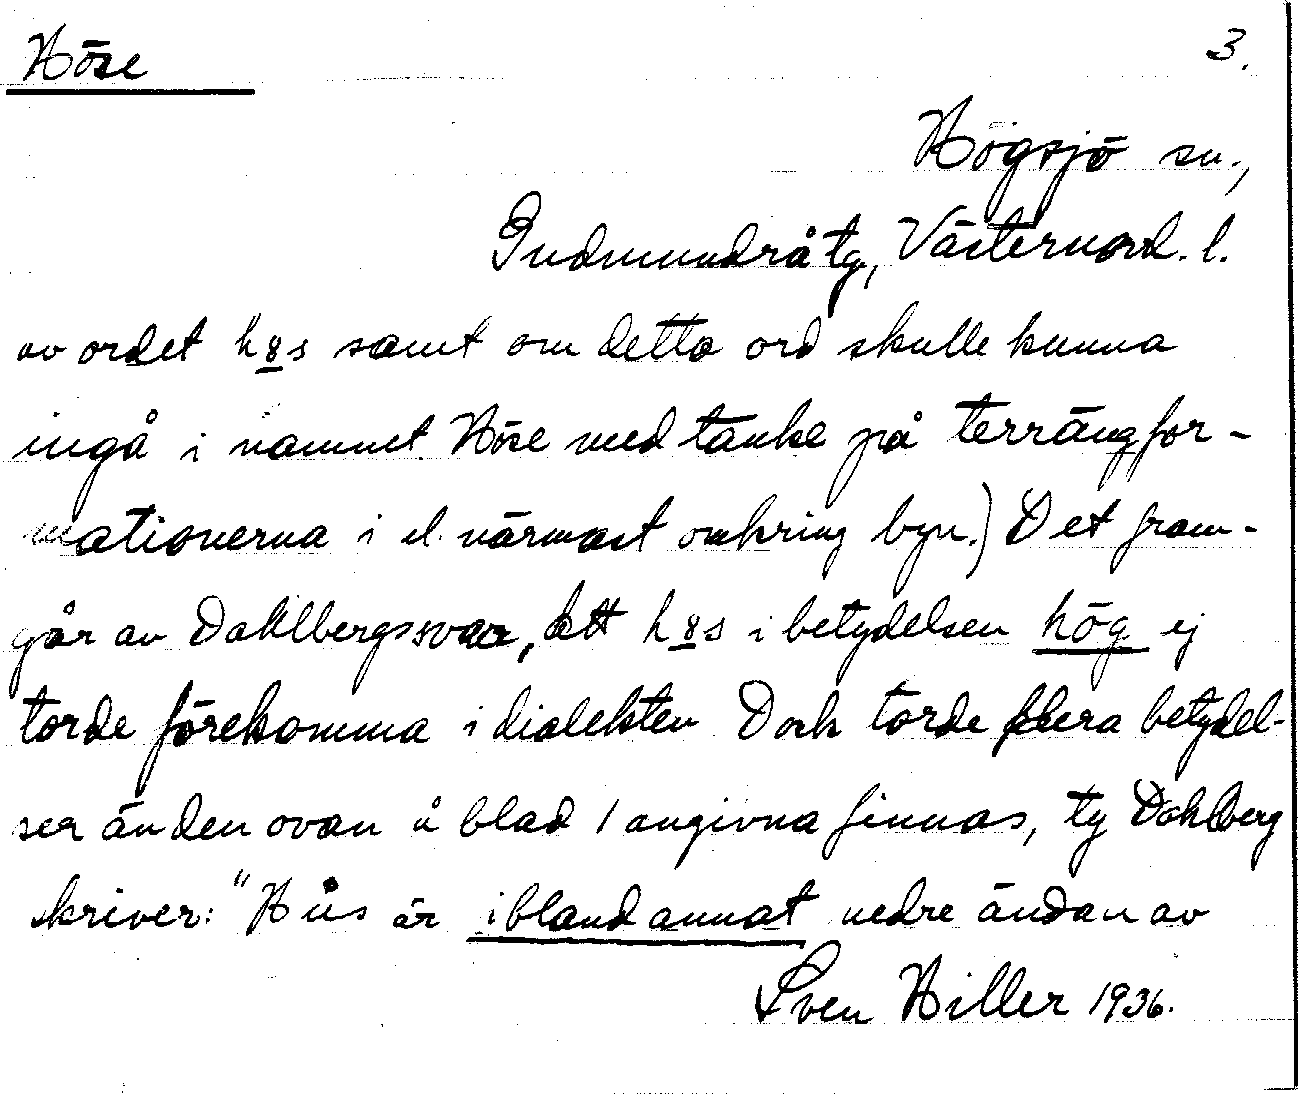 Höse
3.
Högsjö sn.,
Gudmundrå tg, Västernorrl. l.
av ordet h8s samt om detta ord skulle kunna
ingå i namnet Höse med tanke på terrängfor-
mationerna i el. närmast omkring byn.) Det fram-
går av Dahlbergs svar, att h8s i betydelsen hög ej
torde förekomma i dialekten Dock torde flera betydel-
ser än den ovan å blad 1 angivna finnas, ty Dahlberg
skriver: "Hůs är ibland annat nedre ändan av
Sven Hiller 1936.